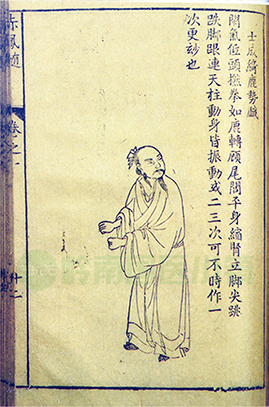 士成綺鹿勢戲
閉氣低頭撚拳如鹿轉顧尾閭平身縮腎立脚尖跳
跌脚跟連天柱動身皆振動或二三次可不時作一
次更妙也
赤鳳髓
卷之一